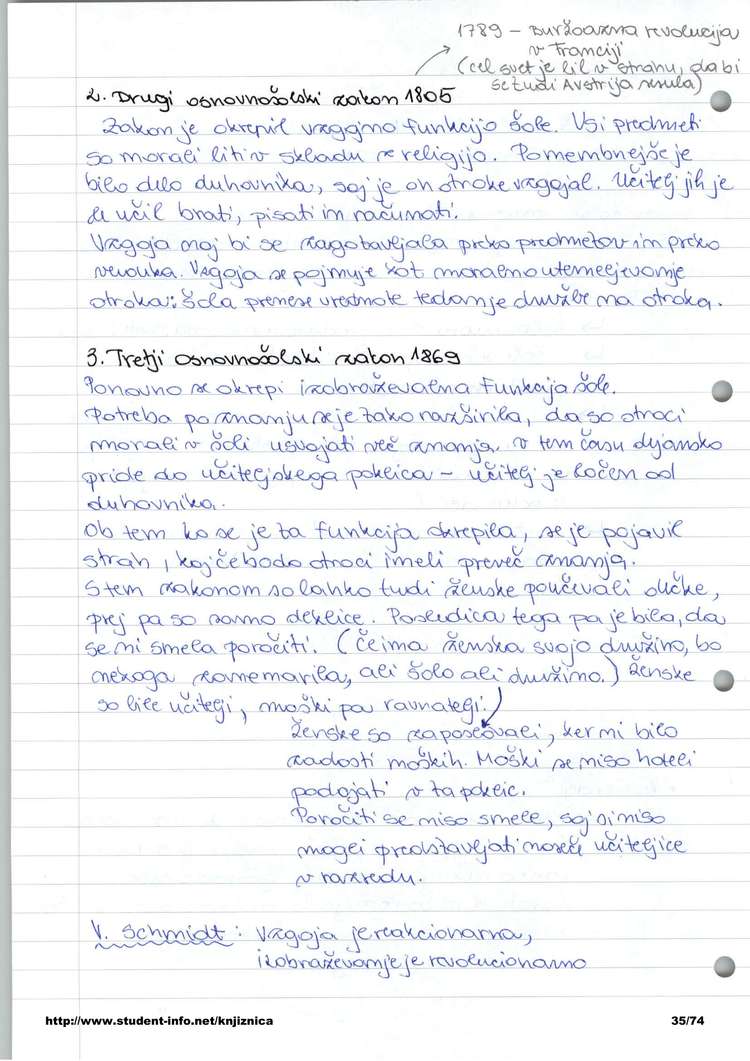 1789 – Buržoazna revolucija
v Franciji
(cel svet je bil v strahu, da bi
se tudi Avstrija resula)
2. Drugi osnovnošolski zakon 1805
Zakon je okrepil vzgojno funkcijo šole. Vsi predmeti
so morali biti v skladu z religijo. Pomembnejše je
bilo delo duhovnika, saj je on otroke vzgajal. Učitelj jih je
le učil brati, pisati in računati.
Vzgoja naj bi se zagotavljala preko predmetov in preko
verouka. Vzgoja se pojmuje kot moralno utemeljevanje
otroka: šola prenese vrednote tedanje družbe na otroka.
3. Tretji osnovnošolski zakon 1869
Ponovno se okrepi izobraževalna funkcija šole.
Potreba po znanju se je tako razširila, da so otroci
morali v šoli usvajati več znanja. v tem času dejansko
pride do učiteljskega poklica – učitelj je ločen od
duhovnika.
Ob tem ko se je ta funkcija okrepila, se je pojavil
strah, kaj če bodo otroci imeli preveč znanja.
S tem zakonom so lahko tudi ženske poučevali dečke,
prej pa so samo deklice. Posledica tega pa je bila, da
se ni smela poročiti. (Če ima ženska svojo družino, bo
nekoga zanemarila, ali šolo ali družino.) Ženske
so bile učitelji, moški pa ravnatelji.
Ženske so zaposlovali, ker ni bilo
zadosti moških. Moški se niso hoteli
podajati v ta poklic.
Poročiti se niso smele, saj si niso
mogli predstavljati noseče učiteljice
v razredu.
V. Schmidt: Vzgoja je reakcionarna,
izobraževanje je revolucionarno
http://www.student-info.net/knjiznica
35/74